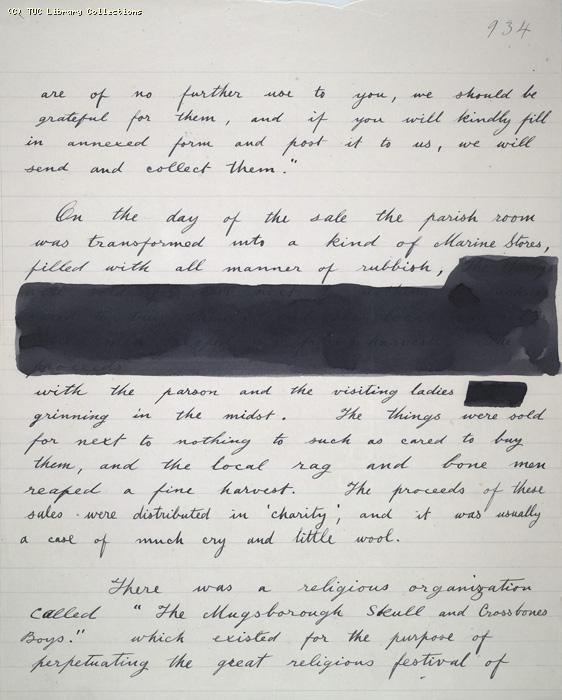 (C) TUC Library Collections
934
are of no further use to you, we should be
grateful for them, and if you will kindly fill
in annexed form and post it to us, we will
send and collect them."
On the day of the sale the parish room
was transformed into a kind of Marine Stores,
filled with all manner of rubbish, The things
with the parson and the visiting ladies
grinning in the midst. The things were sold
for next to nothing to such as cared to buy
them, and the local rag and bone men
reaped a fine harvest. The proceeds of these
sales were distributed in 'charity', and it was usually
a case of much cry and little wool.
There was a religious organization
called "The Mugsborough Skull and Crossbones
Boys." which existed for the purpose of
perpetuating the great religious festival of